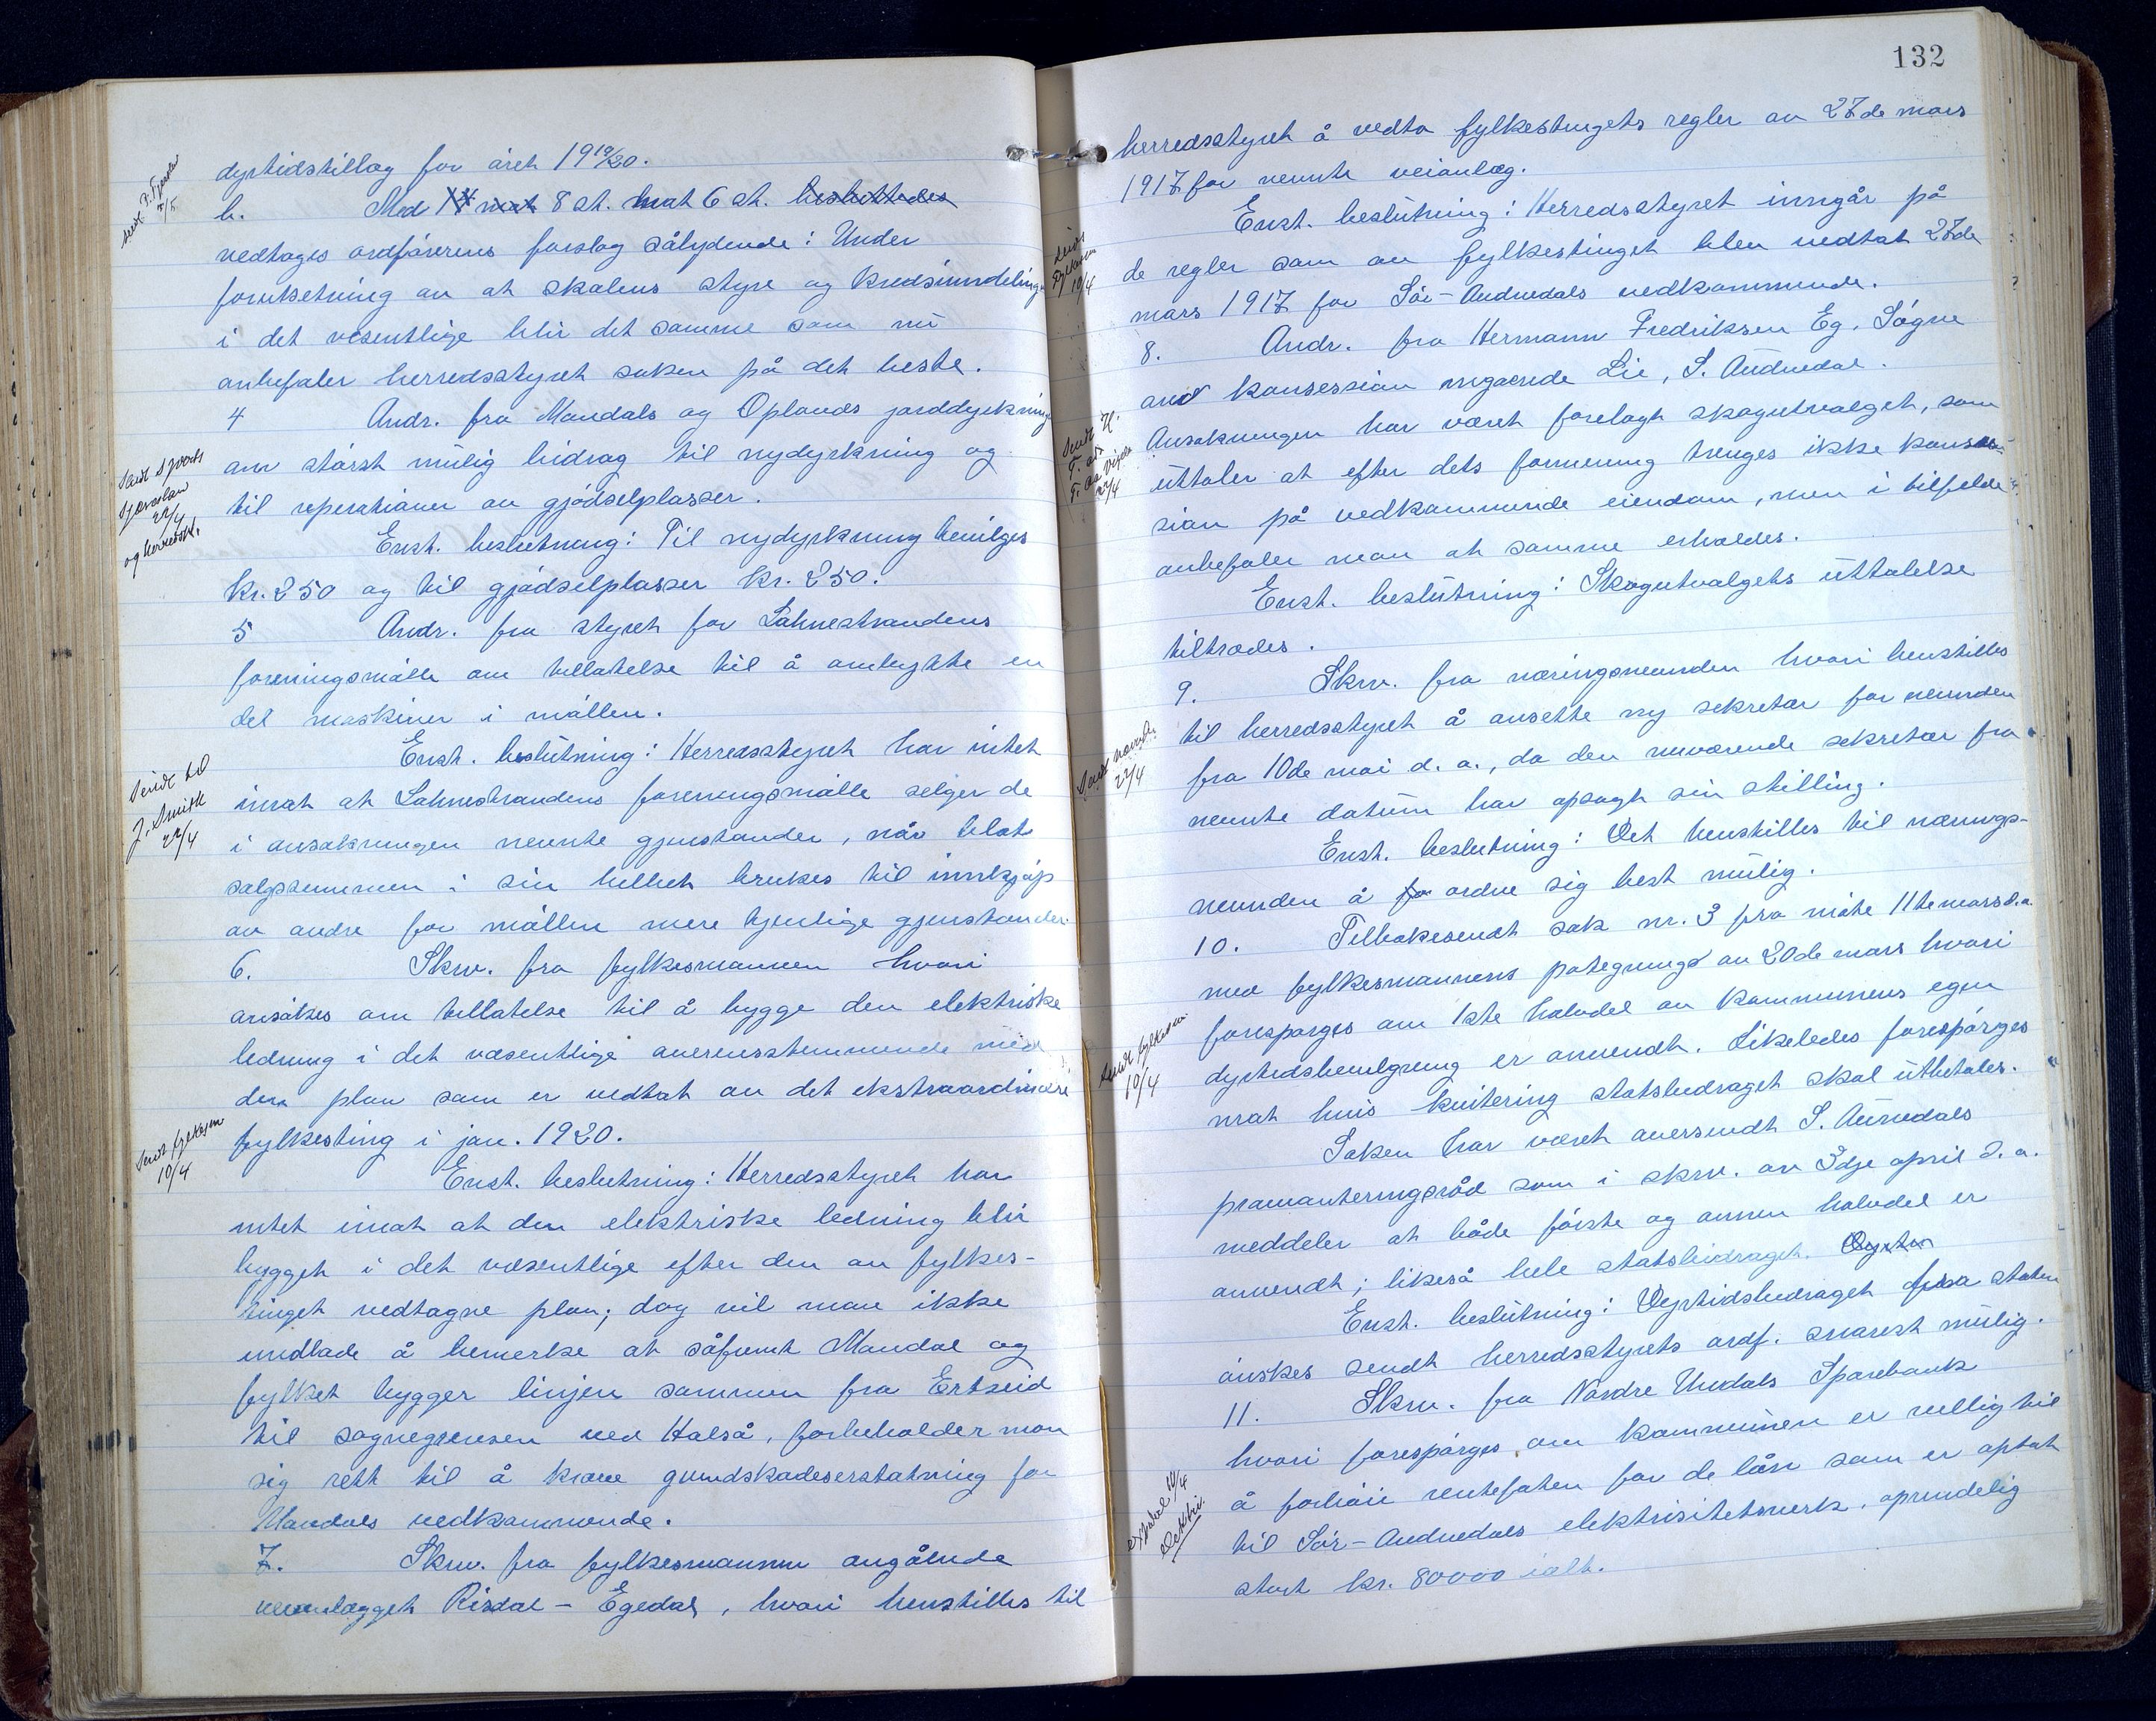 dyrtidstillæg for året 19 19/20.
b. Med 8 st. mot 6 st. besluttedes
vedtages ordförerens forslag sålydende: Under
forutsetning av at skolens styre og kredsinndeling
i det vesentlige blir det samme som nu
anbefaler herredsstyret saken på det beste.
4 Andr. fra Mandals og Oplands jorddyrkning
om störst mulig bidrag til nydyrkning og
til reperationer av gjödselplasser.
Enst. beslutning: Til nydyrkning bevilges
kr. 250 og til gjödselplasser kr. 250.
5 Andr. fra styret for Lahnestrandens
foreningsmölle om tillatelse til å ombytte en
del maskiner i möllen.
Enst. beslutning: Herredsstyret har intet
imot at Lahnestrandens foreningsmölle selger de
i ansökningen nevnte gjenstander, når blot
salgssummen i sin helhet brukes til innkjöp
av andre for möllen mere tjenlige gjenstander.
6. Skriv. fra fylkesmannen hvori
ansökes om tillatelse til å bygge den elektriske
ledning i det væsentlige overensstemmende med
den plan som er vedtat av det ekstraordinære
fylkesting i jan. 1920.
Enst. beslutning: Herredsstyret har
intet imot at den elektriske ledning blir
bygget i det væsentlige efter den av fylkes-
tinget vedtagne plan; dog vil man ikke
undlade å bemerke at såfremt Mandal og
fylket bygger linjen sammen fra Ertseid
til sognegrensen ved Halså, forbeholder man
sig rett til å kræve grundskadeserstatning for
Mandals vedkommende.
7. Skriv. fra fylkesmannen angålnde
veianlægget Risdal - Egedal, hvori henstilles til
Sendt til
J. Smith
22/4
10/4
132
herredsstyret å vedta fylkestingets regler av 27de mars
1917 for nevnte veianlæg.
Enst. beslutning: Herredsstyret inngår på
de regler som av fylkestinget blev vedtat 27de
mars 1917 for Sör-Audnedals vedkommende.
8. Andr. fra Hermann Fredriksen Eg. Sögne
om konsession angaaende Lie, S. Audnedal.
Ansökningen har været forelagt skogutvalget, som
uttaler at efter dets formening trenges ikke konses-
sion på vedkommende eiendom, men i tilfelde
anbefaler man at samme erholdes.
Enst. beslutning: Skogutvalgets uttalelse
tiltrædes.
9. Skriv. fra næringsnevnden hvori henstilles
til herredsstyret å ansette ny sekretær for nevnden
fra 10de mai d. a., da den nuværende sekretær fra
nevnte datum har opsagt sin stilling.
Enst. beslutning: Det henstilles til nærings-
nevnden å fo ordne sig best mulig.
10. Tilbakesendt sak nr. 3 fra möte 11te mars d.a.
med fylkesmannens påtegning av 20de mars hvori
forespörges om 1ste halvdel av kommunens egen
dyrtidsbevilgning er anvendt. Likeledes forespörges
mot hvis kvitering statsbidraget skal utbetales.
Saken har været oversendt S. Audnedals
provianteringsråd som i skriv. av 3dje april d. a.
meddeler at både förste og annen halvdel er
anvendt; likeså hele statsbidraget.
Enst. beslutning: Dyrtidsbidraget fra staten
önskes sendt herredsstyrets ordf. snarest mulig.
11. Skriv. fra Nordre Undals Sparebank
hvori forespörges om kommunen er villig til
å forhöie rentefoten for de lån som er optat
til Sör-Audnedals elektrisitetsverk, oprindelig
stort kr. 80000 ialt.
10/4
22/4
22/4
10/4
10/4